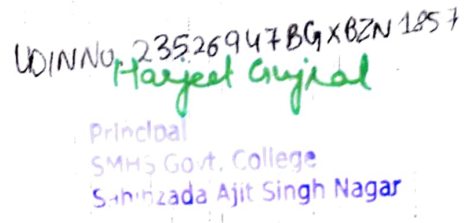 UDIN NO. 23526947BGXBZN1857
Harjeet Gujral
Principal
SMHS Govt. College
Sahibzada Ajit Singh Nagar